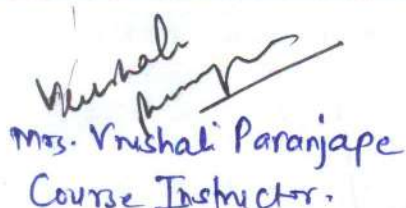 Vrushali
Mrs. Vrushali Paranjape
Course Instructor.